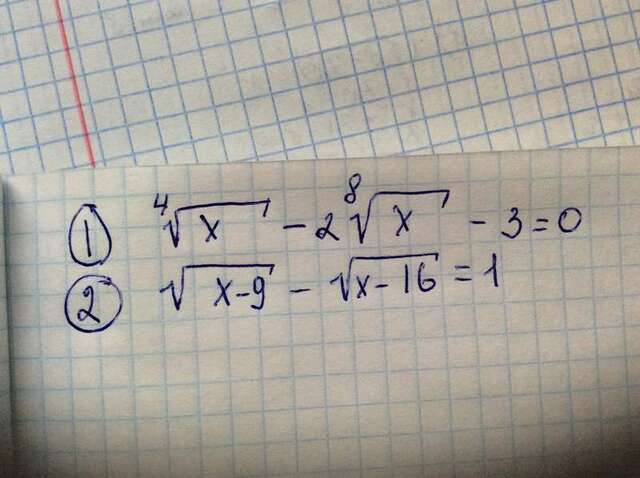 ① ⁴√x − 2 ⁸√x − 3 = 0
② √(x−9) − √(x−16) = 1